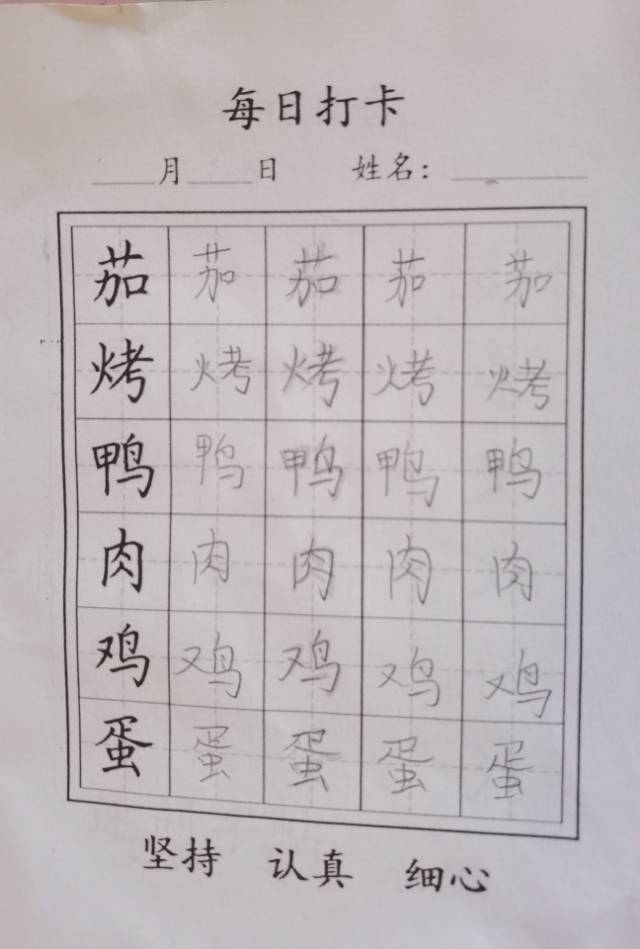 每日打卡
月 日 姓名：
茄 茄 茄 茄 茄
烤 烤 烤 烤 烤
鸭 鸭 鸭 鸭 鸭
肉 肉 肉 肉 肉
鸡 鸡 鸡 鸡 鸡
蛋 蛋 蛋 蛋 蛋
坚持 认真 细心